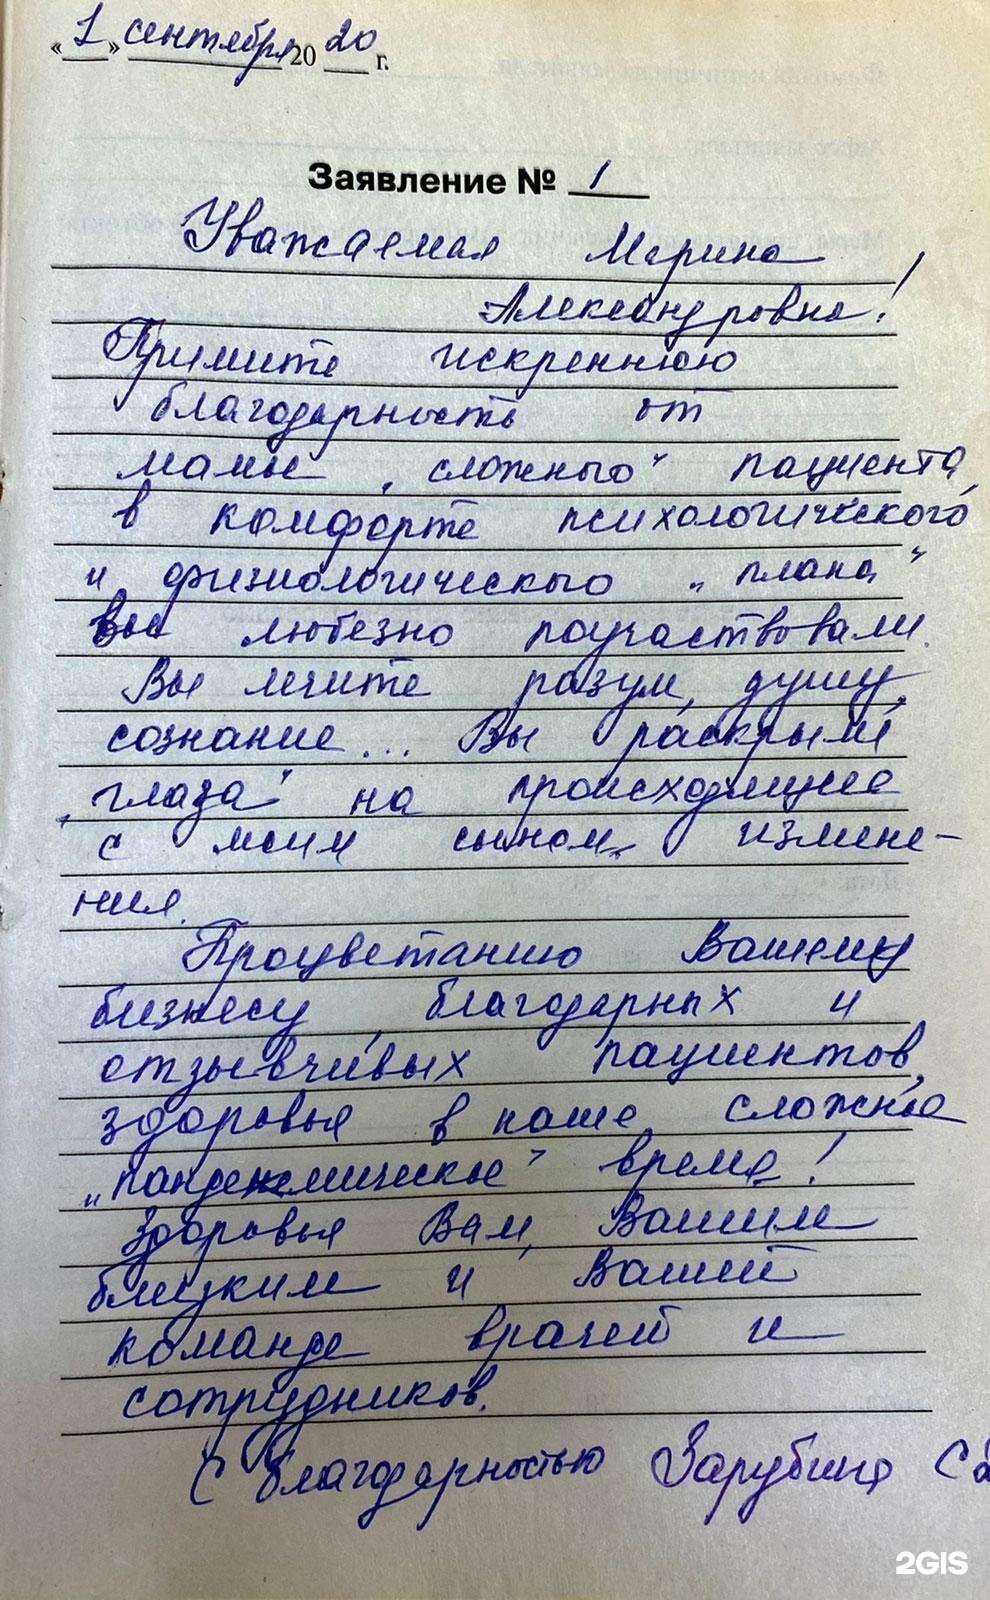 «1» сентября 20 20 г.
Заявление № 1
Уважаемая Марина
Александровна!
Примите искреннюю
благодарность от
мамы „сложного" пациента,
в комфорте психологического
и физиологического „плана"
Вы любезно поучаствовали.
Вы лечите разум, душу,
сознание... Вы раскрыли
„глаза" на происходящие
с моим сыном, измене-
ния.
Процветанию Вашему
бизнесу, благодарных и
отзывчивых пациентов,
здоровья в наше сложное
„пандемическое" время!
Здоровья Вам, Вашим
близким и Вашей
команде врачей и
сотрудников.
С благодарностью Зарубина С
2GIS